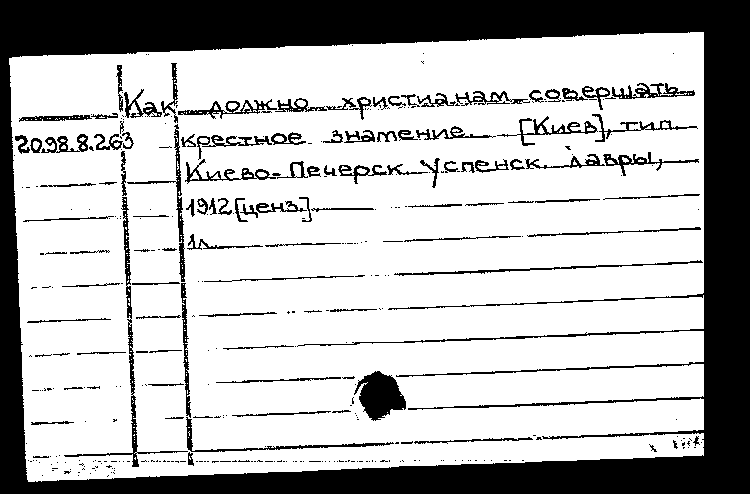 Как должно христианам совершать
20.98.8.263 крестное знамение. [Киев], тип.
Киево-Печерск. Успенск. лавры,
1912[ценз.].
1л.